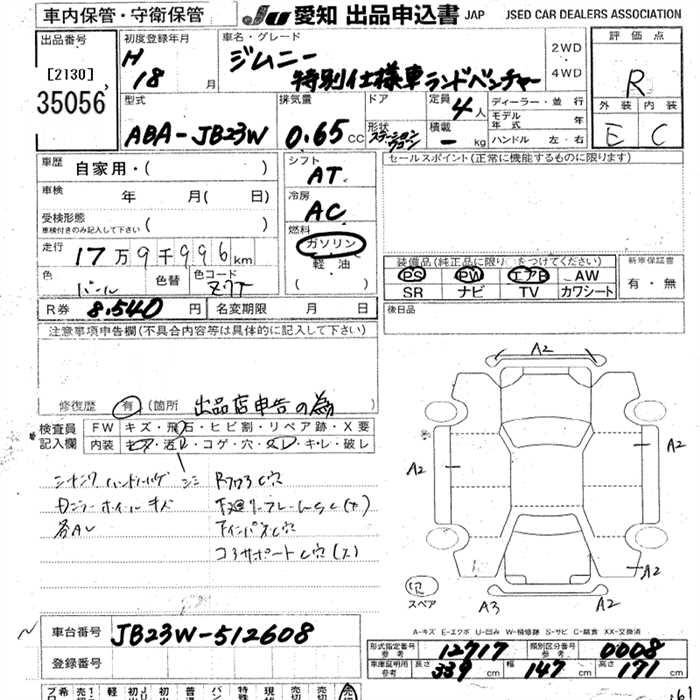 車内保管・守衛保管
JU 愛知 出品申込書 JAP JSED CAR DEALERS ASSOCIATION
出品番号
[2130]
35056
初度登録年月
H
18 月
車名・グレード
ジムニー
特別仕様車ランドベンチャー
2WD
4WD
評価点
R
外装 内装
E C
型式
ABA-JB23W
排気量
0.65 cc
ドア
形状
ステーションワゴン
定員 4 人
積載 - kg
ディーラー・並行
モデル年 年
ハンドル 左・右
車歴 自家用・( )
車検 年 月( 日)
受検形態
車検付きのみ記入して下さい ( )
走行 17万9千996km
色 パール 色替 色コード Z7T
R券 8,540 円 名変期限 月 日
シフト
AT
冷房
AC
燃料
ガソリン
軽・油
( )
セールスポイント(正常に機能するものに限ります)
装備品(純正品に限り○をつけてください)
PS PW エアB AW
SR ナビ TV カワシート
新車保証書
有・無
後日品
注意事項申告欄(不具合内容等は具体的に記入して下さい)
修復歴 有 (箇所 出品店申告の為
検査員記入欄
FW キズ・飛石・ヒビ割・リペア跡・X要
内装 キズ・汚レ・コゲ・穴・スレ・キレ・破レ
各AU
下廻りフレームSC(大)
コアサポートC穴(大)
A2
A2
A2
A2
A2
A3
スペア
A-キズ E-エクボ U-凹み W-補修跡 S-サビ C-腐食 XX-交換済
車台番号 JB23W-512608
登録番号
形式指定番号 参考 12717 類別区分番号 参考 0008
車庫証明用 参考 長さ 339 cm 幅 147 cm 高さ 171 cm